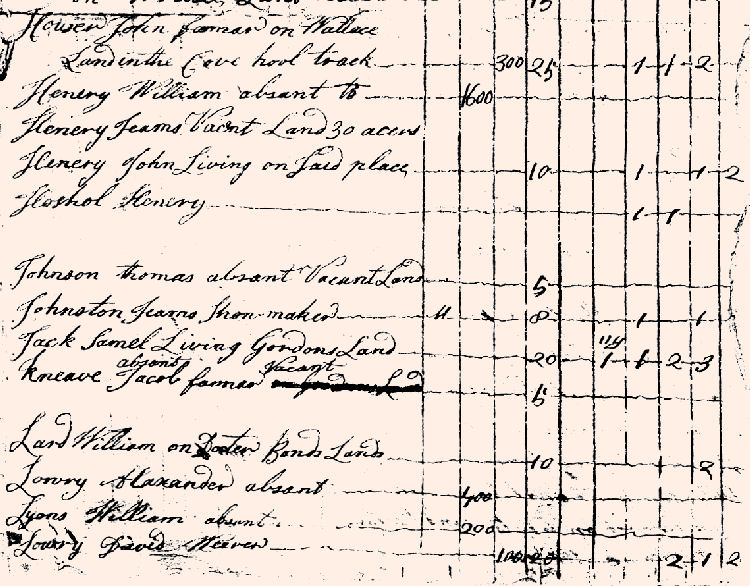 Houser John farmar on Wallace
Land in the Cove hool track 300 25 1 1 2
Henery William absant to 1600
Henery Jeams Vacnt Land 30 acers
Henery John Living on Said place 10 1 1 2
Hoshol Henery 1 1
Johnson thomas absant Vacant Land 5
Johnston Jeams Shoumaker 11 8 1 1
Jack Samel Living Gordons Land 20 1 1 2 3
absant vacant
Kneave Jacob farmar 5
Lard William on Docter Bonds Lands 10 1 2
Lowry Alaxander absent 400
Lyons William absent 200
Lowry David Weaver 2 1 2